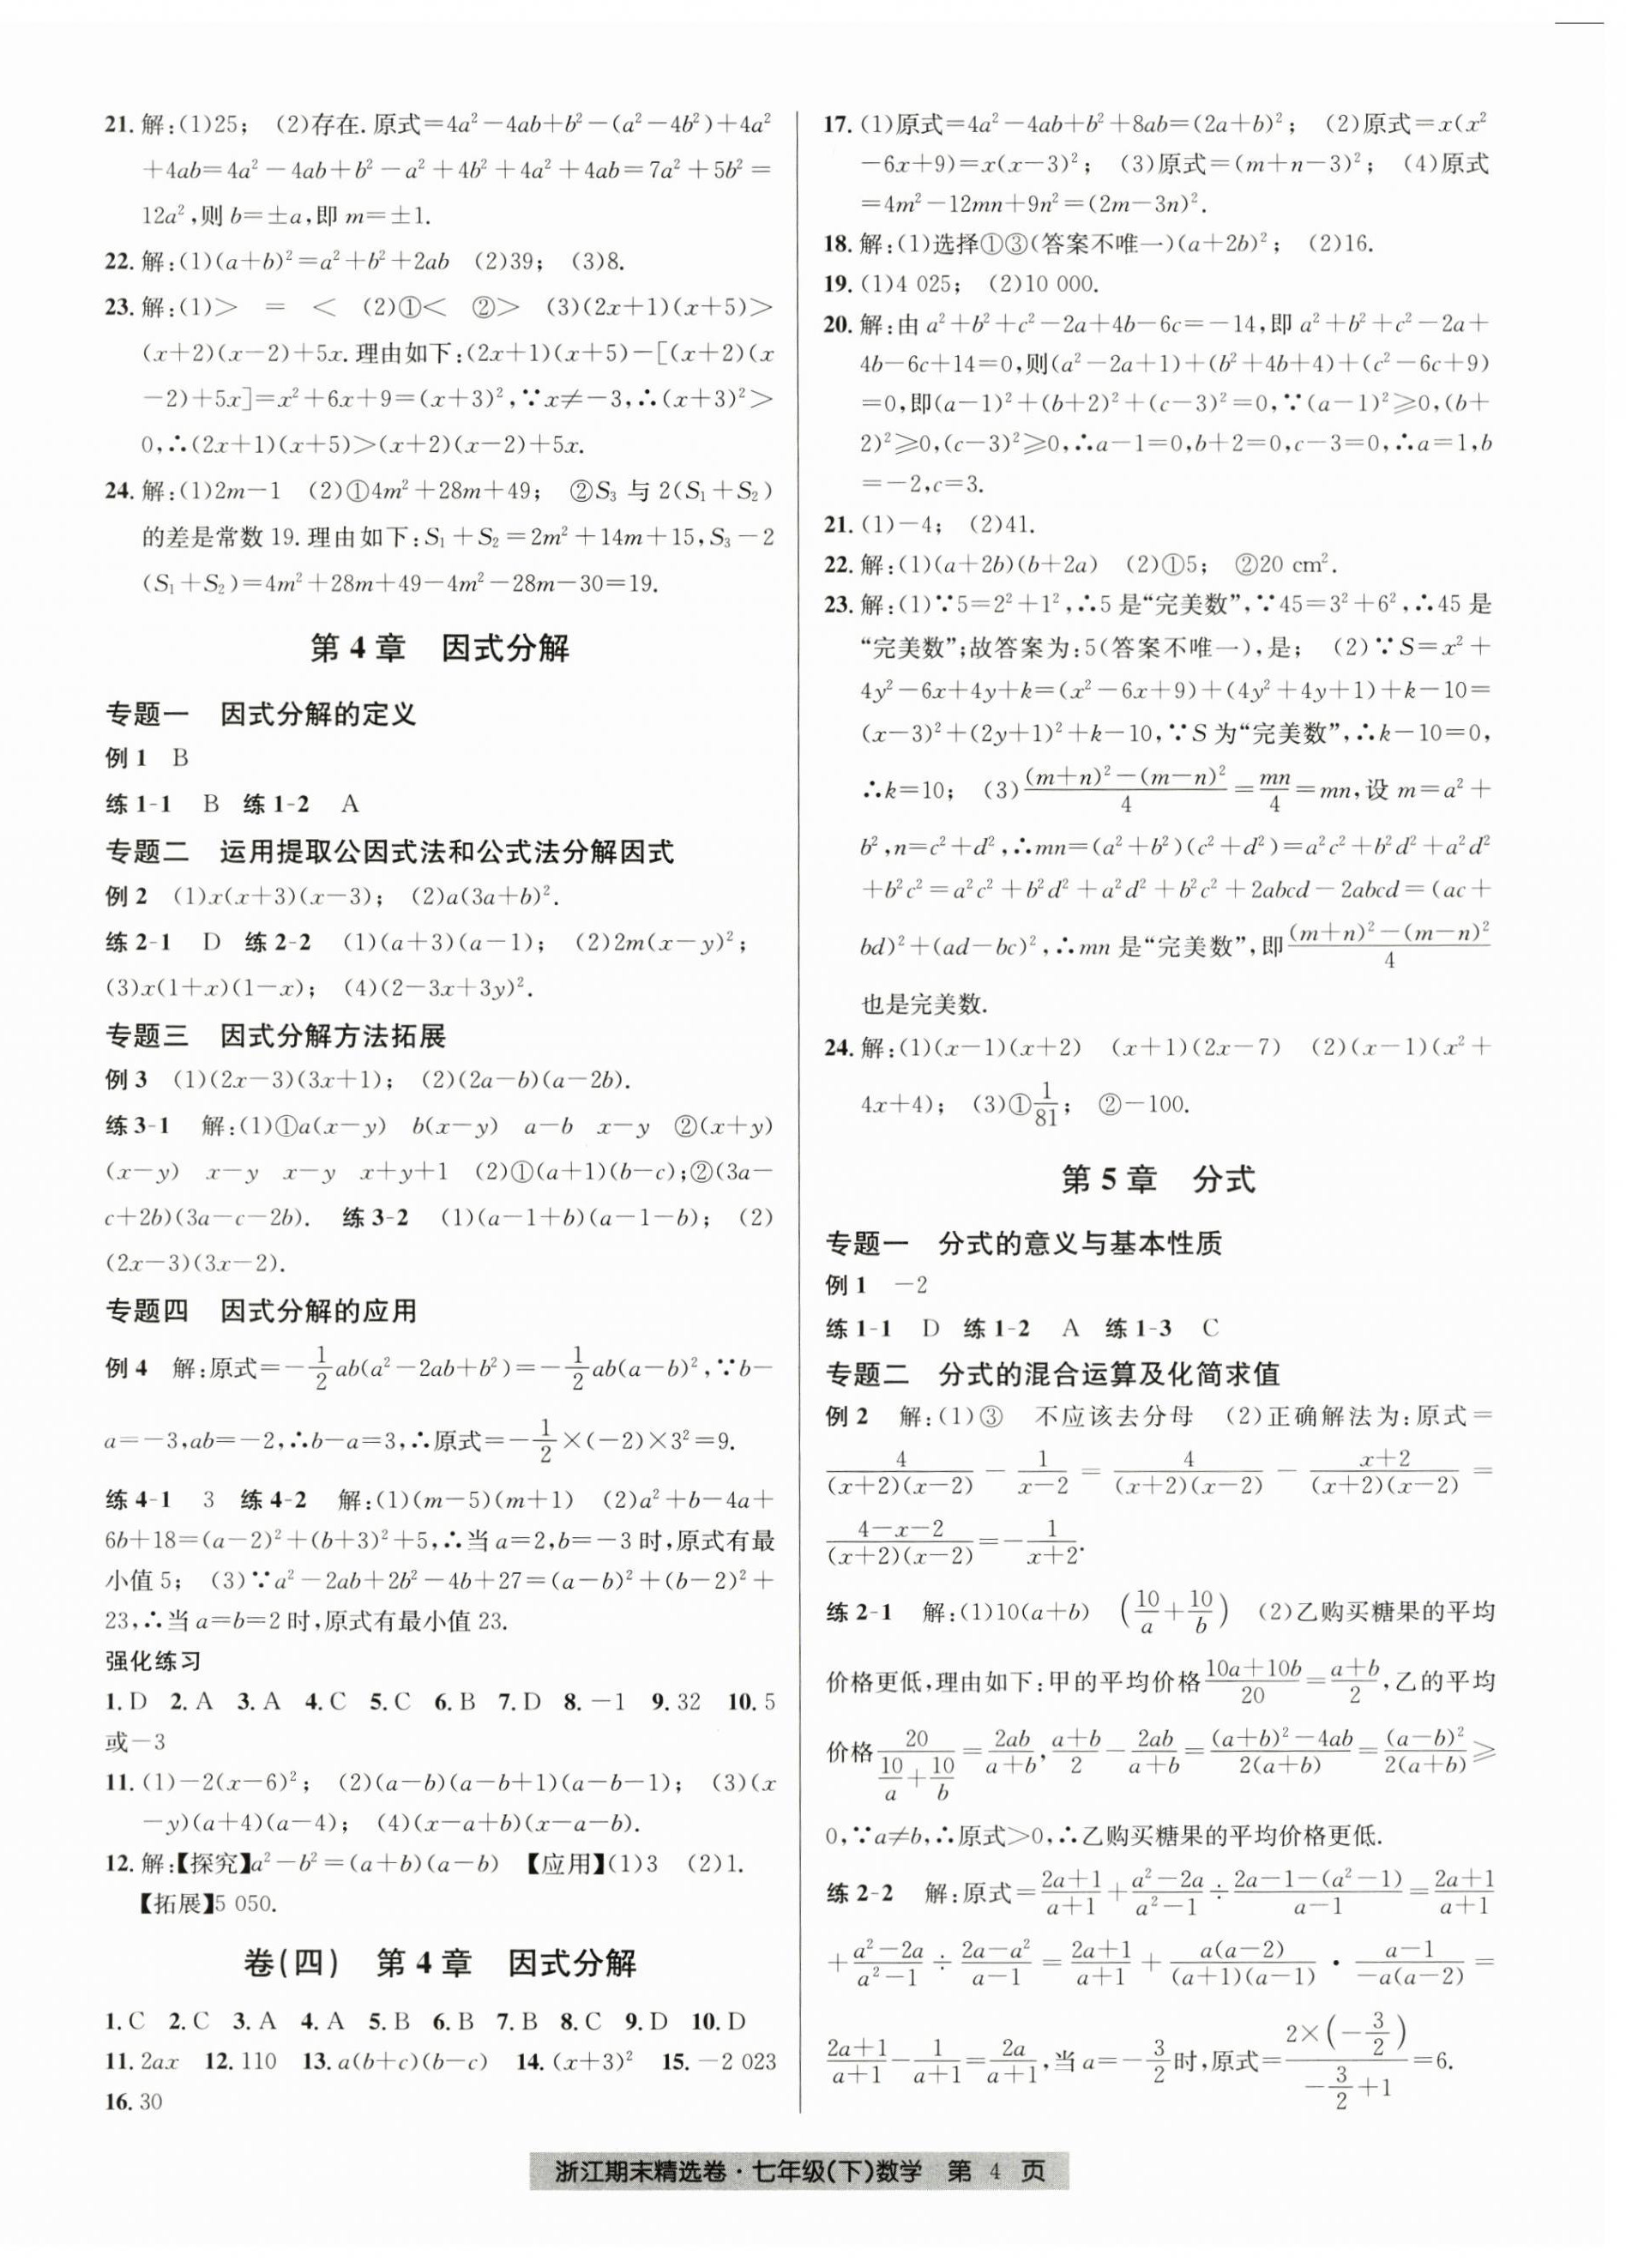 21. 解:(1)25; (2)存在. 原式=4a²-4ab+b²-(a²-4b²)+4a²
+4ab=4a²-4ab+b²-a²+4b²+4a²+4ab=7a²+5b²=
12a²,则 b=±a,即 m=±1.
22. 解:(1)(a+b)²=a²+b²+2ab (2)39; (3)8.
23. 解:(1)> = < (2)①< ②> (3)(2x+1)(x+5)>
(x+2)(x-2)+5x. 理由如下:(2x+1)(x+5)-[(x+2)(x
-2)+5x]=x²+6x+9=(x+3)²,∵x≠-3,∴(x+3)²>
0,∴(2x+1)(x+5)>(x+2)(x-2)+5x.
24. 解:(1)2m-1 (2)①4m²+28m+49; ②S₃ 与 2(S₁+S₂)
的差是常数 19. 理由如下:S₁+S₂=2m²+14m+15,S₃-2
(S₁+S₂)=4m²+28m+49-4m²-28m-30=19.
第 4 章 因式分解
专题一 因式分解的定义
例 1 B
练 1-1 B 练 1-2 A
专题二 运用提取公因式法和公式法分解因式
例 2 (1)x(x+3)(x-3); (2)a(3a+b)².
练 2-1 D 练 2-2 (1)(a+3)(a-1); (2)2m(x-y)²;
(3)x(1+x)(1-x); (4)(2-3x+3y)².
专题三 因式分解方法拓展
例 3 (1)(2x-3)(3x+1); (2)(2a-b)(a-2b).
练 3-1 解:(1)①a(x-y) b(x-y) a-b x-y ②(x+y)
(x-y) x-y x-y x+y+1 (2)①(a+1)(b-c);②(3a-
c+2b)(3a-c-2b). 练 3-2 (1)(a-1+b)(a-1-b); (2)
(2x-3)(3x-2).
专题四 因式分解的应用
例 4 解:原式=-1/2 ab(a²-2ab+b²)=-1/2 ab(a-b)²,∵b-
a=-3,ab=-2,∴b-a=3,∴原式=-1/2×(-2)×3²=9.
练 4-1 3 练 4-2 解:(1)(m-5)(m+1) (2)a²+b-4a+
6b+18=(a-2)²+(b+3)²+5,∴当 a=2,b=-3 时,原式有最
小值 5; (3)∵a²-2ab+2b²-4b+27=(a-b)²+(b-2)²+
23,∴当 a=b=2 时,原式有最小值 23.
强化练习
1. D 2. A 3. A 4. C 5. C 6. B 7. D 8. -1 9. 32 10. 5
或-3
11. (1)-2(x-6)²; (2)(a-b)(a-b+1)(a-b-1); (3)(x
-y)(a+4)(a-4); (4)(x-a+b)(x-a-b).
12. 解:【探究】a²-b²=(a+b)(a-b) 【应用】(1)3 (2)1.
【拓展】5 050.
卷(四) 第 4 章 因式分解
1. C 2. C 3. A 4. A 5. B 6. B 7. B 8. C 9. D 10. D
11. 2ax 12. 110 13. a(b+c)(b-c) 14. (x+3)² 15. -2 023
16. 30
17. (1)原式=4a²-4ab+b²+8ab=(2a+b)²; (2)原式=x(x²
-6x+9)=x(x-3)²; (3)原式=(m+n-3)²; (4)原式
=4m²-12mn+9n²=(2m-3n)².
18. 解:(1)选择①③(答案不唯一)(a+2b)²; (2)16.
19. (1)4 025; (2)10 000.
20. 解:由 a²+b²+c²-2a+4b-6c=-14,即 a²+b²+c²-2a+
4b-6c+14=0,则(a²-2a+1)+(b²+4b+4)+(c²-6c+9)
=0,即(a-1)²+(b+2)²+(c-3)²=0,∵(a-1)²≥0,(b+
2)²≥0,(c-3)²≥0,∴a-1=0,b+2=0,c-3=0,∴a=1,b
=-2,c=3.
21. (1)-4; (2)41.
22. 解:(1)(a+2b)(b+2a) (2)①5; ②20 cm².
23. 解:(1)∵5=2²+1²,∴5 是“完美数”,∵45=3²+6²,∴45 是
“完美数”;故答案为:5(答案不唯一),是; (2)∵S=x²+
4y²-6x+4y+k=(x²-6x+9)+(4y²+4y+1)+k-10=
(x-3)²+(2y+1)²+k-10,∵S 为“完美数”,∴k-10=0,
∴k=10; (3)((m+n)²-(m-n)²)/4=mn/4=mn,设 m=a²+
b²,n=c²+d²,∴mn=(a²+b²)(c²+d²)=a²c²+b²d²+a²d²
+b²c²=a²c²+b²d²+a²d²+b²c²+2abcd-2abcd=(ac+
bd)²+(ad-bc)²,∴mn 是“完美数”,即((m+n)²-(m-n)²)/4
也是完美数.
24. 解:(1)(x-1)(x+2) (x+1)(2x-7) (2)(x-1)(x²+
4x+4); (3)①1/81; ②-100.
第 5 章 分式
专题一 分式的意义与基本性质
例 1 -2
练 1-1 D 练 1-2 A 练 1-3 C
专题二 分式的混合运算及化简求值
例 2 解:(1)③ 不应该去分母 (2)正确解法为:原式=
4/((x+2)(x-2)) - 1/(x-2) = 4/((x+2)(x-2)) - (x+2)/((x+2)(x-2)) =
(4-x-2)/((x+2)(x-2))=-1/(x+2).
练 2-1 解:(1)10(a+b) (10/a+10/b) (2)乙购买糖果的平均
价格更低,理由如下:甲的平均价格(10a+10b)/20=(a+b)/2,乙的平均
价格20/(10/a+10/b)=2ab/(a+b),(a+b)/2-2ab/(a+b)=((a+b)²-4ab)/(2(a+b))=(a-b)²/(2(a+b))≥
0,∵a≠b,∴原式>0,∴乙购买糖果的平均价格更低.
练 2-2 解:原式=(2a+1)/(a+1)+(a²-2a)/(a²-1)÷(2a-1-(a²-1))/(a-1)=(2a+1)/(a+1)
+(a²-2a)/(a²-1)÷(2a-a²)/(a-1)=(2a+1)/(a+1)+a(a-2)/((a+1)(a-1))·(a-1)/(-a(a-2))=
(2a+1)/(a+1)-1/(a+1)=2a/(a+1),当 a=-3/2时,原式=(2×(-3/2))/(-3/2+1)=6.
浙江期末精选卷·七年级(下)数学 第 4 页